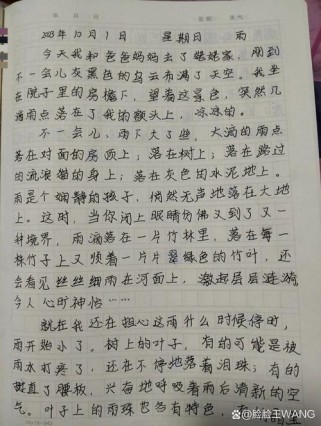 2023年10月1日 星期日 雨
今天我和爸爸妈妈去了姥姥家,刚到
不一会儿灰黑色的乌云布满了天空。我坐
在院子里的房檐下,望着这景色,突然几
滴雨点落在了我的额头上,凉凉的。
不一会儿,雨下大了些,大滴的雨点
落在对面的房顶上;落在树上;落在路过
的流浪猫的身上;落在灰色的水泥地上。
雨是个娴静的孩子,悄然无声地落在大地
上。这时,当你闭上眼睛仿佛又到了又一
种境界,雨滴落在一片竹林里,落在每一
株竹子上又顺着一片片翠绿色的竹叶,还
会看见丝丝细雨在河面上,激起层层涟漪
令人心旷神怡……
就在我还在担心这雨什么时候停时,
雨开始小了。树上的叶子,有的可能是被
雨水打疼了,还在不停地落着泪珠;有的
挺直了腰板,兴奋地呼吸着雨后清新的空
气。叶子上的雨珠也各有特色,有
@脸脸王WANG